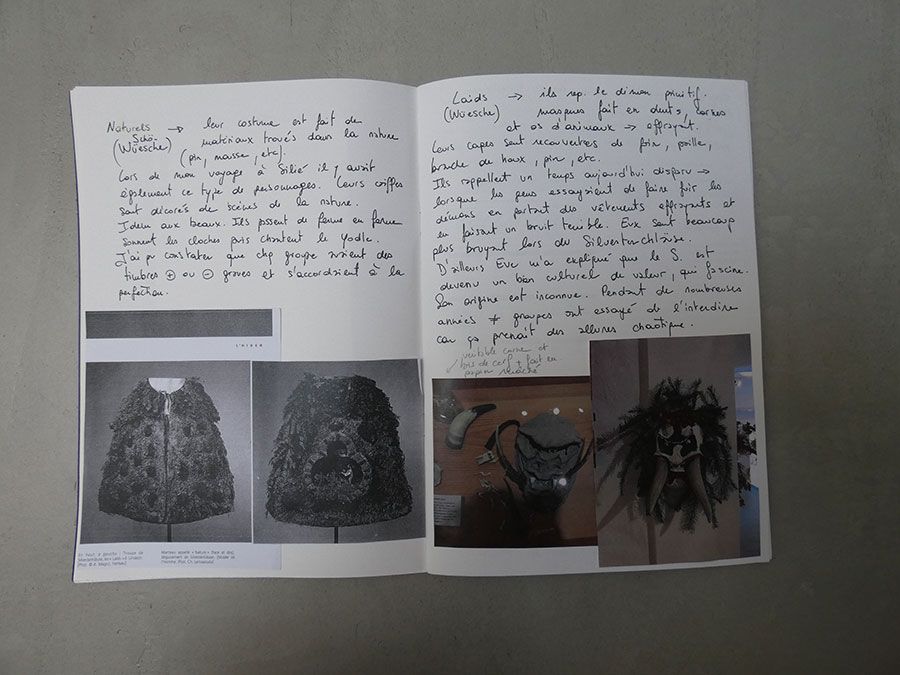 Naturels → leur costume est fait de
Schö- matériaux trouvés dans la nature
(Wüesche) (pin, mousse, etc).
Lors de mon voyage à Silié il y avait
également ce type de personnages. Leurs coiffes
sont décorés de scènes de la nature.
Idem aux beaux. Ils passent de ferme en ferme
sonnent les cloches puis chantent le Yodle.
J'ai pu constater que chq groupe avaient des
timbres ⊕ ou ⊖ graves et s'accordaient à la
perfection.
Laids → ils rep. le démon primitif.
(Wüesche) masques fait en dents, cornes
et os d'animaux → effrayant.
Leurs capes sont recouvertes de foin, paille,
branche de houx, pin, etc.
Ils rappellent un temps aujourd'hui disparu →
lorsque les gens essayaient de faire fuir les
démons en portant des vêtements effrayants et
en faisant un bruit terrible. Eux sont beaucoup
plus bruyant lors du Silvesterchläuse.
D'ailleurs Eve m'a expliqué que le S. est
devenu un bien culturel de valeur, qui fascine.
Son origine est inconnue. Pendant de nombreuses
années ≠ groupes ont essayé de l'interdire
car ça prenait des allures chaotique.
véritable corne et
bois de cerf + fait en
papier mâché
En haut, à gauche :